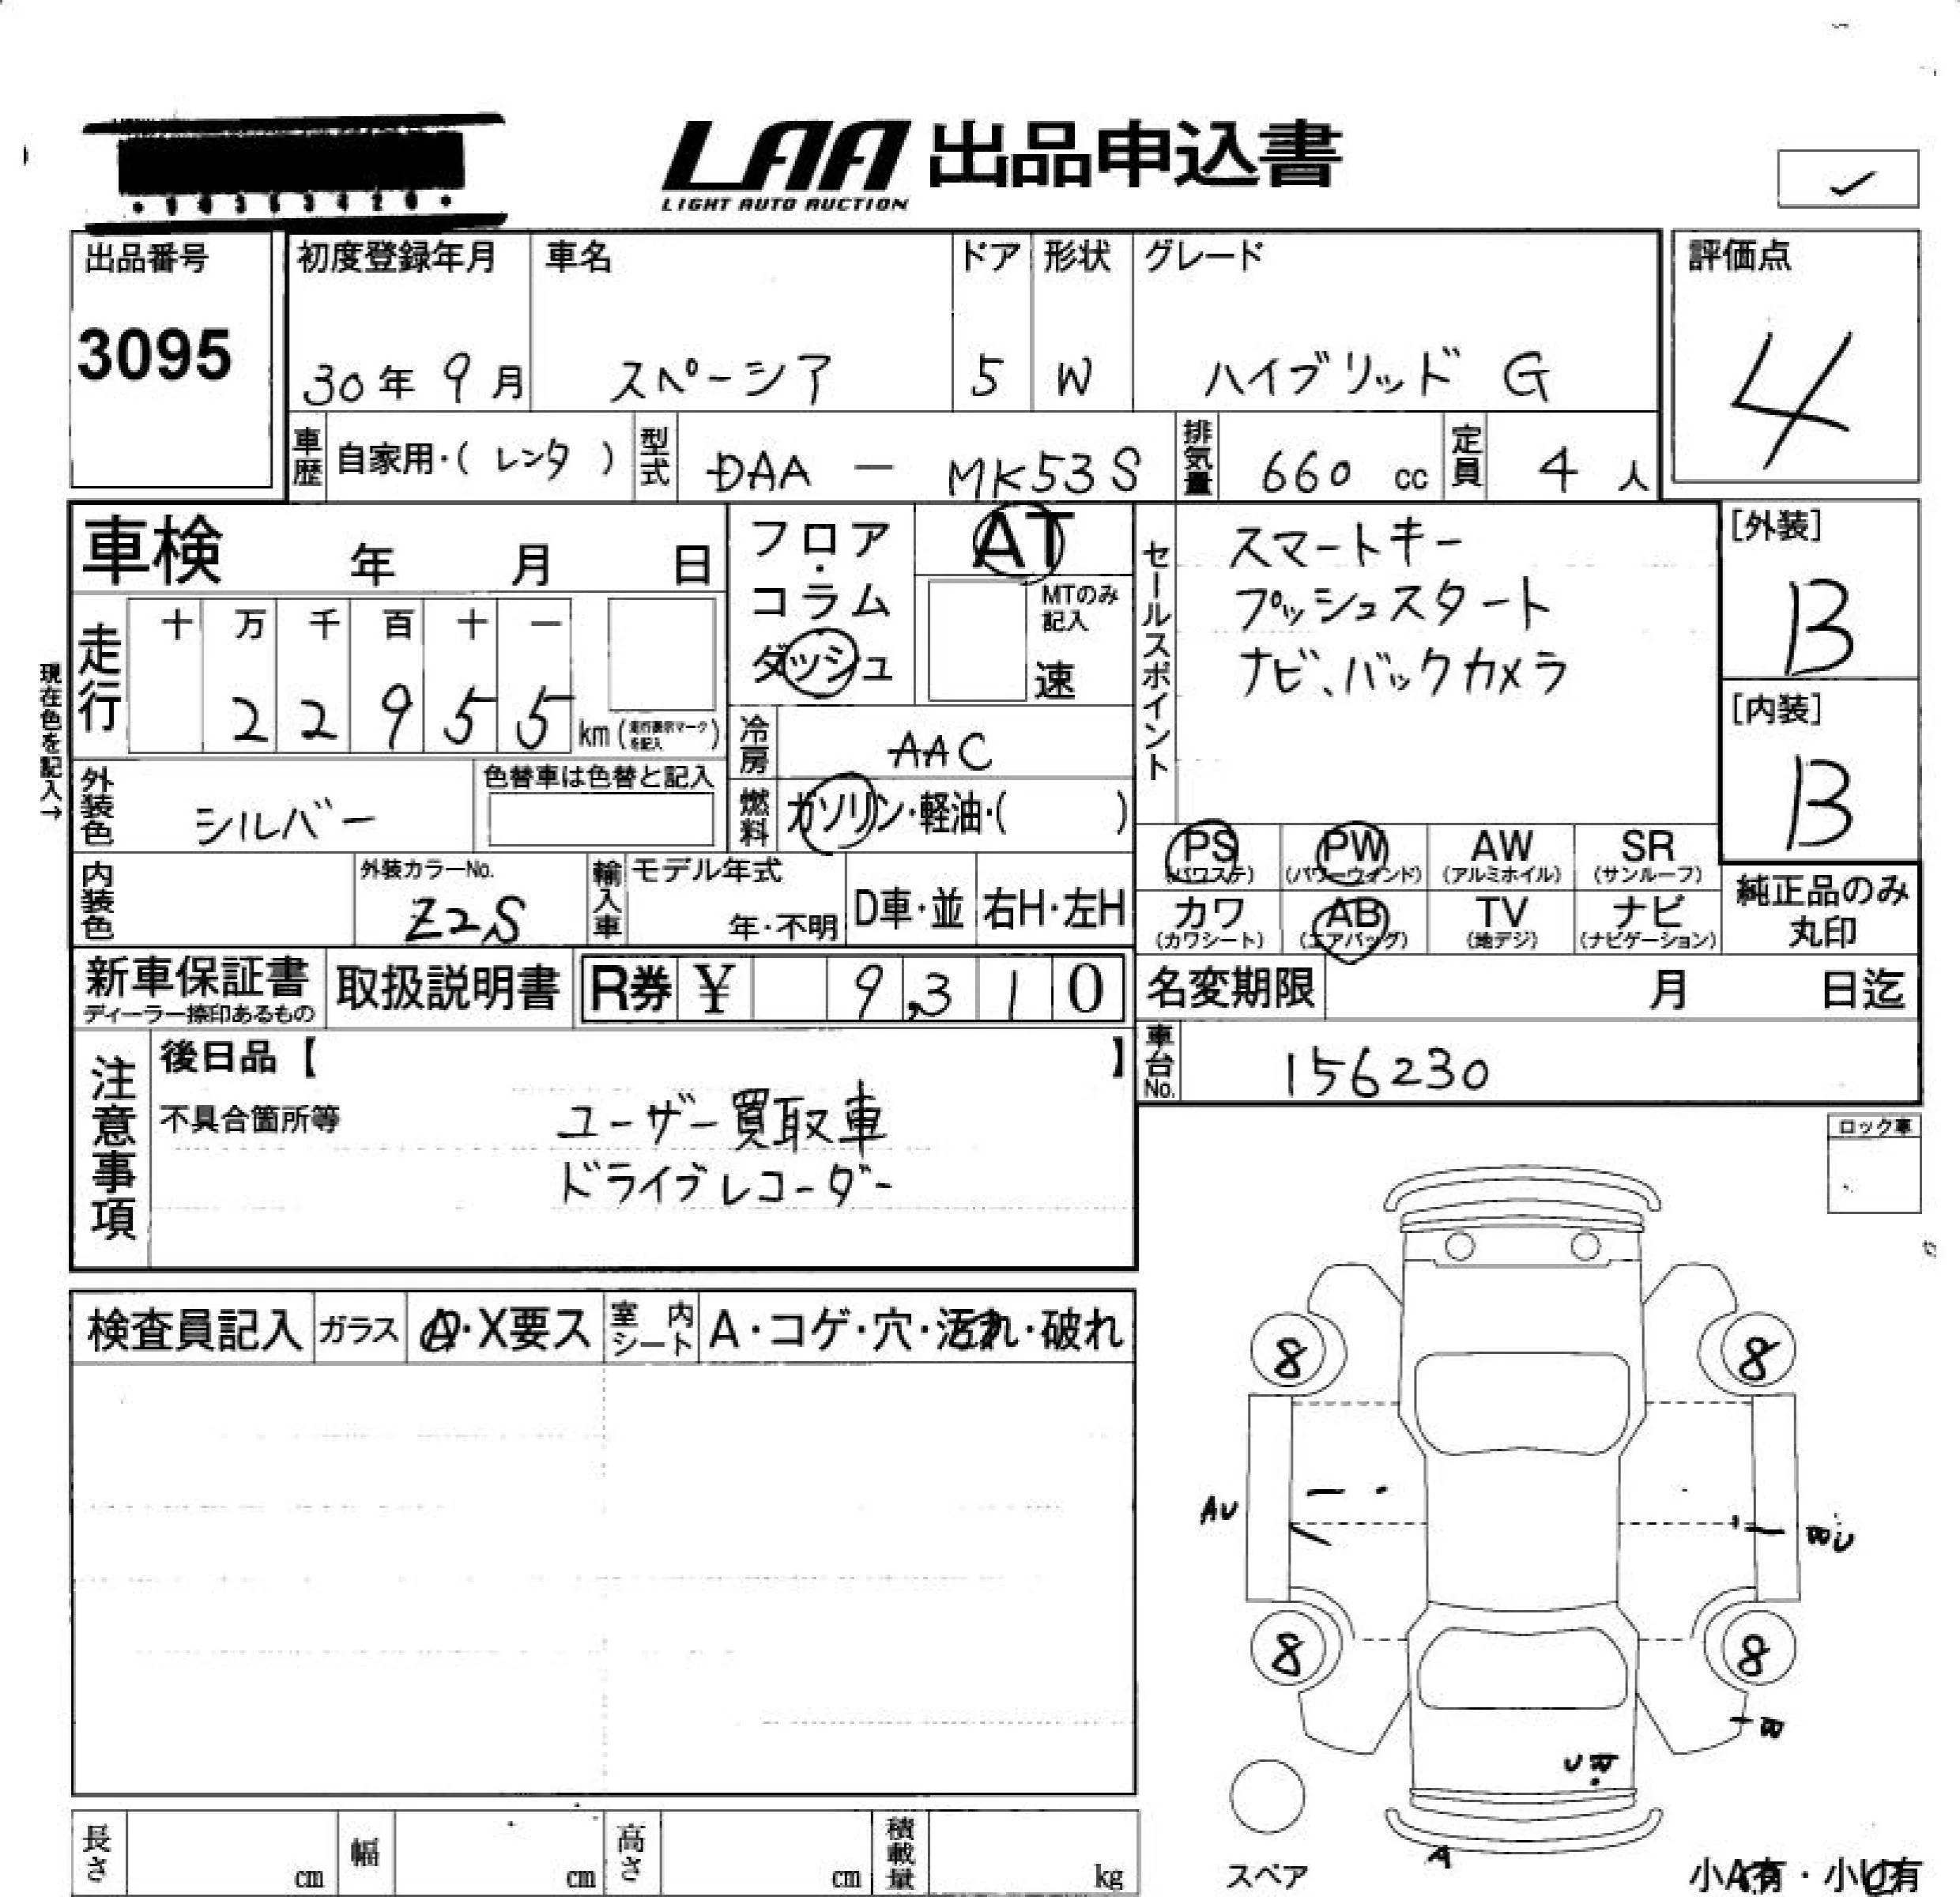 LAA 出品申込書
LIGHT AUTO AUCTION
出品番号
3095
初度登録年月
30年 9月
車名
スペーシア
ドア
5
形状
W
グレード
ハイブリッド G
評価点
4
車歴
自家用・( レンタ )
型式
DAA - MK53S
排気量
660 cc
定員
4 人
車検 年 月 日
現在色を記入→
走行
十 万 千 百 十 一
2 2 9 5 5 km (走行表示マークを記入)
フロア・コラム
ダッシュ
AT
MTのみ記入
速
セールスポイント
スマートキー
プッシュスタート
ナビ、バックカメラ
[外装]
B
[内装]
B
外装色
シルバー
色替車は色替と記入
冷房
AAC
燃料
ガソリン・軽油・( )
内装色
外装カラーNo.
Z2S
輸入車
モデル年式
年・不明
D車・並
右H・左H
PS
(パワステ)
PW
(パワーウィンド)
AW
(アルミホイル)
SR
(サンルーフ)
カワ
(カワシート)
AB
(エアバッグ)
TV
(地デジ)
ナビ
(ナビゲーション)
純正品のみ
丸印
新車保証書
ディーラー捺印あるもの
取扱説明書
R券 ¥ 9,310
名変期限 月 日迄
車台No.
156230
注意事項
後日品【 】
不具合箇所等
ユーザー買取車
ドライブレコーダー
ロック車
検査員記入
ガラス
A・X要ス
室内シート
A・コゲ・穴・汚れ・破れ
8
8
AU
BU
8
8
B
UB
A
スペア
小A有・小U有
長さ cm
幅 cm
高さ cm
積載量 kg